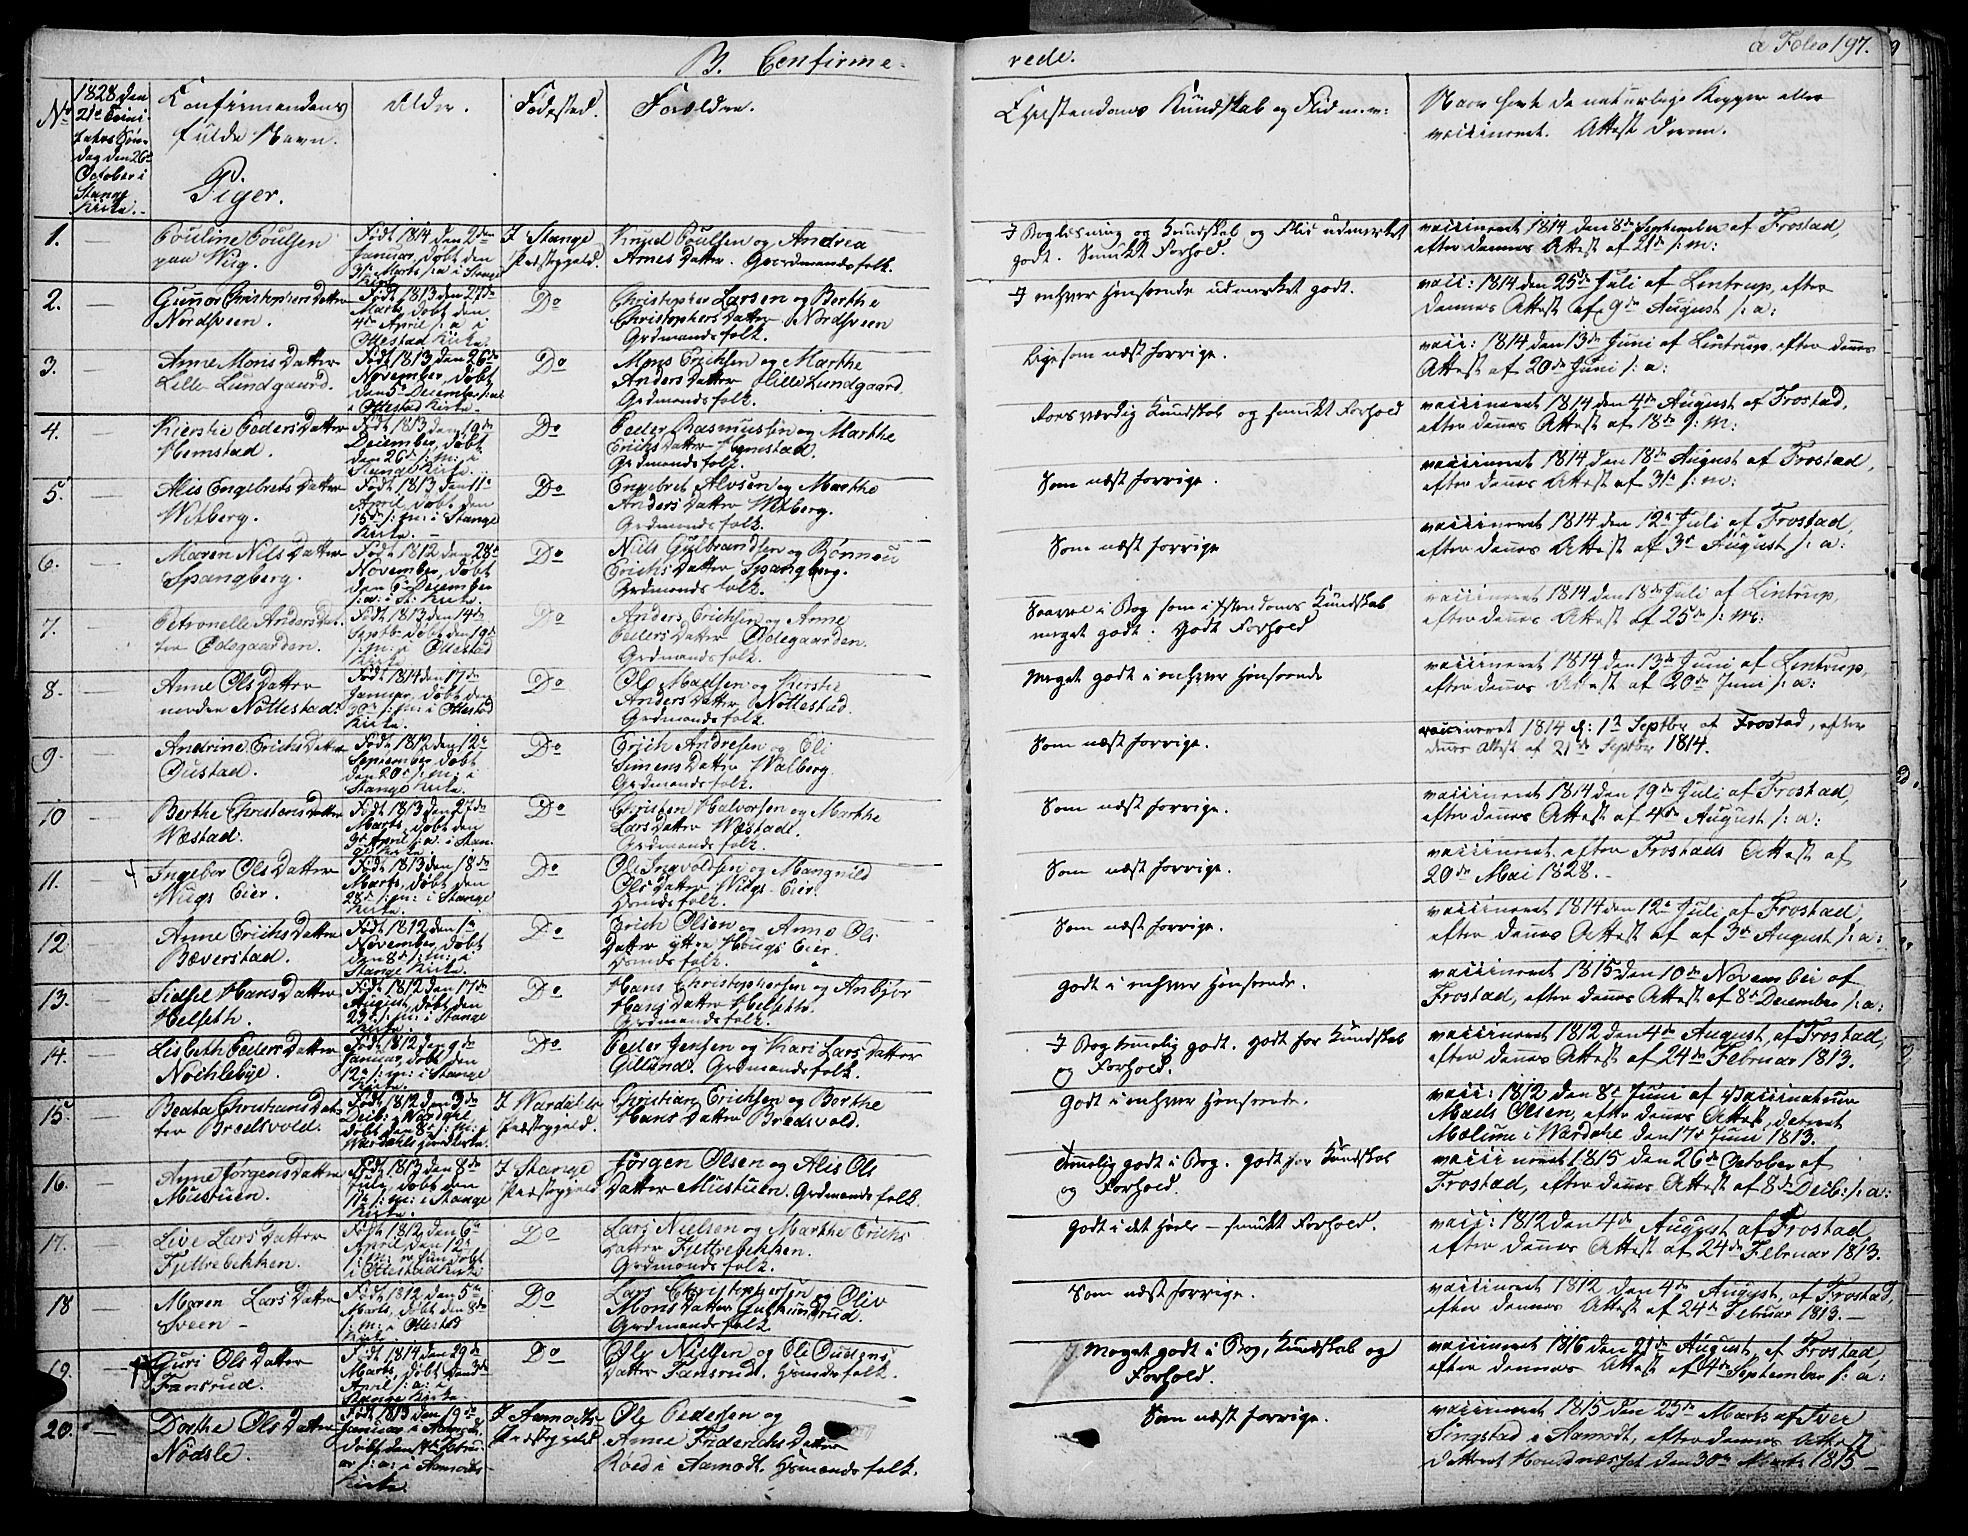 B. Confirme-
rede.
a Folio 197.
No
1828 den
21de Trini-
tatis Søn-
dag den 26de
October i
Stange
Kirke.
Konfirmandens
fulde Navn.
Piger.
Alder.
Fødested.
Forældre.
Christendoms Kundskab og Flid m.m:
Naar havt de naturlige Kopper eller
vaccineret. Attest derom.
1.
Pouline Poulsen
paa Wug.
Født 1814 den 2den
Januar, døbt den
3de Marts s: a: i Stange
Kirke
I Stange
Præstegjeld.
Knud Poulsen og Andrea
Arnes Datter. Gaardmandsfolk.
I Boglæsning og Kundskab og Flid udmærket
godt. Smukt Forhold.
vaccineret 1814 den 8de September af Frostad,
efter dennes Attest af 21de s: m:
2.
Gunor Christophers Datter
Nordsveen.
Født 1813 den 27de
Marts, døbt den
4de April s: a: i
Ottestad Kirke.
Do
Christopher Larsen og Berthe
Christophers Datter Nordsveen
Grdmandsfolk.
I enhver Henseende udmærket godt.
vacc: 1814 den 25de Juli af Lintrup, efter
dennes Attest af 9de August s: a:
3.
Anne Mons Datter
Lille Lundgaard.
Født 1813 den 26de
November, døbt
den 5te December s: a:
i Ottestad Kirke.
Do
Mons Erichsen og Marthe
Anders Datter Lille Lundgaard
Grdmandsfolk.
Ligesom næst forrige.
vacc: 1814 den 13de Juni af Lintrup, efter dennes
Attest af 20de Juni s: a:
4.
Kierstie Peders Datter
Hemstad.
Født 1813 den 19de
December, døbt
den 26de s: m: i
Stange Kirke.
Do
Peder Rasmussen og Marthe
Erichs Datter Hemstad.
Grdmandsfolk.
Roesværdig Kundskab og smukt Forhold
vaccineret 1814 den 4de August af Frostad,
efter dennes Attest af 18de s: m:
5.
Alis Engebrets Datter
Witberg.
Født 1813 den 11te
April, døbt den
15de s: m: i Stange
Kirke.
Do
Engebret Alvsen og Marthe
Anders Datter Witberg.
Grdmandsfolk.
Som næst forrige.
vaccineret 1814 den 18de August af Frostad,
efter dennes Attest af 31te s: m:
6.
Maren Nils Datter
Spangberg.
Født 1812 den 28de
November, døbt
den 6te December
s: a: i St: Kirke.
Do
Niels Gulbrandsen og Rønnou
Erichs Datter Spangberg.
Grdmandsfolk.
Som næst forrige
vaccineret 1814 den 12te Juli af Frostad,
efter dennes Attest af 3de August s: a:
7.
Petronelle Anders Dat-
ter Ødegaarden.
Født 1813 den 14de
Septbr døbt den 19de
s: m: i Ottestad
Kirke
Do
Anders Erichsen og Anne
Peders Datter Ødegaarden.
Grdmandsfolk.
Saavel i Bog som i Xstendoms Kundskab
meget godt. Godt Forhold
vaccineret 1814 den 18de Juli af Lintrup,
efter dennes Attest af 25de s: m:
8.
Anne Ols Datter
nordre Nøttestad.
Født 1814 den 17de
Januar, døbt den
30te s: m: i Ottestad
Kirke.
Do
Ole Madsen og Kierstie
Anders Datter Nøttestad.
Grdmandsfolk
Meget godt i enhver Henseende
vaccineret 1814 den 13de Juni af Lintrup,
efter dennes Attest af 20de Juni s: a:
9.
Andrine Erichs Datter
Oustad.
Født 1812 den 12te
September, døbt
den 20de s: m: i
Stange Kirke.
Do
Erich Andresen og Eli
Simens Datter Walberg.
Grdmandsfolk.
Som næst forrige.
vaccineret 1814 d: 1te Septbr af Frostad, efter
dennes Attest af 21de Septbr 1814.
10
Berthe Christens Datter
Wæstad.
Født 1813 den 27de
Marts, døbt den
3de April s: a: i Stan-
ge Kirke.
Do
Christen Halvorsen og Marthe
Lars Datter Wæstad.
Grdmandsfolk.
Som næst forrige.
vaccineret 1814 den 19de Juli af Frostad,
efter dennes Attest af 4de August s: a:
11.
Ingebor Ols Datter
Wugs Eier.
Født 1813 den 18de
Marts, døbt den
28de s: m: i Stange
Kirke.
Do
Ole Ingvoldsen og Mangnild
Ols Datter Wugs-Eier.
Huusmdsfolk.
Som næst forrige.
vaccineret efter Frostads Attest af
20de Mai 1828.
12.
Anne Erichs Datter
Bæverstad.
Født 1812 den 1te
November, døbt
den 8de s: m: i
Stange Kirke.
Do
Erich Olsen og Anne Ols
Datter ytre Hougs Eier.
Som næst forrige.
vaccineret 1814 den 12te Juli af Frostad,
efter dennes Attest af af 3de August s: a:
13.
Sidsel Hans Datter
Helseth.
Født 1812 den 17de
August, døbt den
23de s: m: i Stange
Kirke.
Do
Hans Christophersen og Anbjør
Hans Datter Helseth.
Grdmandsfolk.
Godt i enhver Henseende.
vaccineret 1815 den 10de November af
Frostad, efter dennes Attest af 8de December s: a:
14.
Lisbeth Peders Datter
Nochlebye.
Født 1812 den 9de
Januar, døbt den
12te s: m: i Stange
Kirke.
Do
Peder Jensen og Kari Lars Datter
Gillund. Grdmandsfolk.
I Bog temmelig godt. Godt for Kundskab
og Forhold.
vaccineret 1812 den 4de August, af Frostad,
efter dennes Attest af 24de Februar 1813.
15.
Beata Christians Dat-
ter Bredsvold.
Født 1812 den 3de
Decb: i Wardahl
døbt den 8de s: m: i
Wardahls Hovedkirke.
I Wardahls
Præstegjeld.
Christian Erichsen og Berthe
Hans Datter Bredsvold.
Godt i enhver Henseende.
vacc: 1812 den 8de Juni af Vaccinateur
Mads Olsen, efter dennes Attest, dateret
Mælume i Wardahl den 17de Juni 1813.
16.
Anne Jørgens Datter
Mustuen.
Født 1813 den 8de
July, døbt den
11te s: m: i Stange
Kirke.
I Stange
Præstegjeld
Jørgen Olsen og Alis Ols
Datter Mustuen. Grdmandsfolk.
Temmelig godt i Bog. Godt for Kundskab
og Forhold.
vaccineret 1815 den 26de October af
Frostad, efter dennes Attest af 8de Decb: s: a:
17.
Live Lars Datter
Fjettrebekken.
Født 1812 den 6te
April, den 12te
s: m: er hun døbt
i Ottestad Kirke
Do
Lars Nielsen og Marthe Erichs
Datter Fjettrebekken.
Grdmandsfolk.
Godt i det Hele - smukt Forhold.
vacc: 1812 den 4de August af Frostad
efter dennes Attest af 24de Februar 1813.
18
Maren Lars Datter
Sveen -
Født 1812 den 5te
Marts, døbt den 8de
s: m: i Ottestad
Kirke
Do
Lars Christophersen og Oliv
Mons Datter Guthumsrud.
Grdmandsfolk
Som næst forrige.
vaccineret 1812 den 4de August, af Frostad,
efter dennes Attest af 24de Februar 1813. -
19.
Guri Ols Datter
Fansrud.
Født 1814 den 29de
Marts, døbt den 3de
April s: a: i
Stange Kirke.
Do
Ole Nielsen og Oli Oustens
Datter Fansrud. Huusmdsfolk.
Meget godt i Bog, Kundskab og
Forhold.
vaccineret 1816 den 21de August, af Frostad
efter dennes Attest af 4de September s: a:
20.
Dorthe Ols Datter
Nødsle.
Født 1813 den 19de
Januar i Aamodt,
døbt den 14de Febru-
ar s: a: i Aamodts
Kirke.
I Aamodts-
Præstegjeld
Ole Pedersen og
Anne Friderichs Datter
Roed i Aamodt. Huusmandsfolk.
Som næst forrige.
vaccineret 1815 den 23de Marts af Iver
Singstad i Aamodt, efter dennes Attest
datteret Hovdnæsset den 30te Marts 1815. -